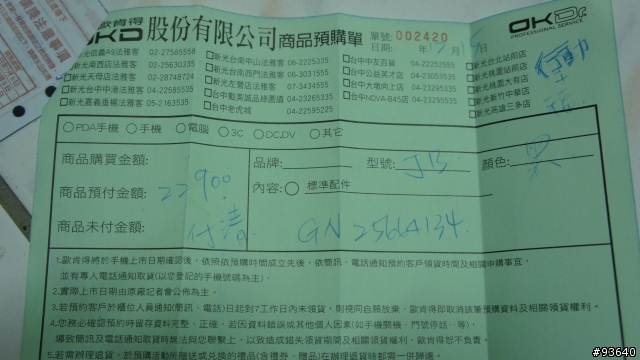 歐肯得 OKD 股份有限公司 商品預購單
單號:002420
日期: 年12月1 日
OKDr.
PROFESSIONAL SERVICE
新光信義A9法雅客 02-27585558
新光南西店法雅客 02-25630335
新光天母店法雅客 02-28748724
新光台中中港法雅客
新光嘉義垂楊法雅客 05-2163535
□新光台南中山法雅客 06-2225335
□新光台南西門法雅客 06-3031555
□新光左營店法雅客 07-3434555
□台中勤美誠品綠園道 04-23265335
□台中老虎城 04-22595225
□台中中友百貨 04-22252555
□台中公益英才店 04-23053535
□台中大墩向上店 04-23295335
□台中NOVA-B45店 04-23295535
□新光台北站前店
□新光桃園站前店
□新光桃園大有店
□新光新竹中華店
□新光高雄三多店
○PDA手機 ○手機 ○電腦 ○3C ○DC,DV ○其它
商品購買金額:
品牌: 型號: JB 顏色: 黑
商品預付金額: 22900
內容:○ 標準配件
商品未付金額: 付清
GN 2564134
1.歐肯得將於手機上市日期確認後,依照依預購時間成立先後、依簡訊、電話通知預約客戶領貨時間及相關申購事宜,
並有專人電話通知取貨(以您登記的手機號碼為主)。
2.實際上市日期由原廠記者會公佈為主。
3.若預約客戶於櫃位人員通知(簡訊、電話)日起到7工作日內未領貨,則視同自願放棄,歐肯得即取消該筆預購資料及相關領貨權利。
4.您務必確認預約時留存資料完整、正確,若因資料錯誤或其他個人因素(如手機關機、門號停話,等),
導致簡訊及電話通知無法與您聯繫上,以致造成錯失領貨期間及相關領貨權利,歐肯得恕不負責。
5.若需辦理退貨,於預購活動所贈送或兌換的禮品(含禮券、贈品)在辦理退貨時都需一併歸還。
#93640